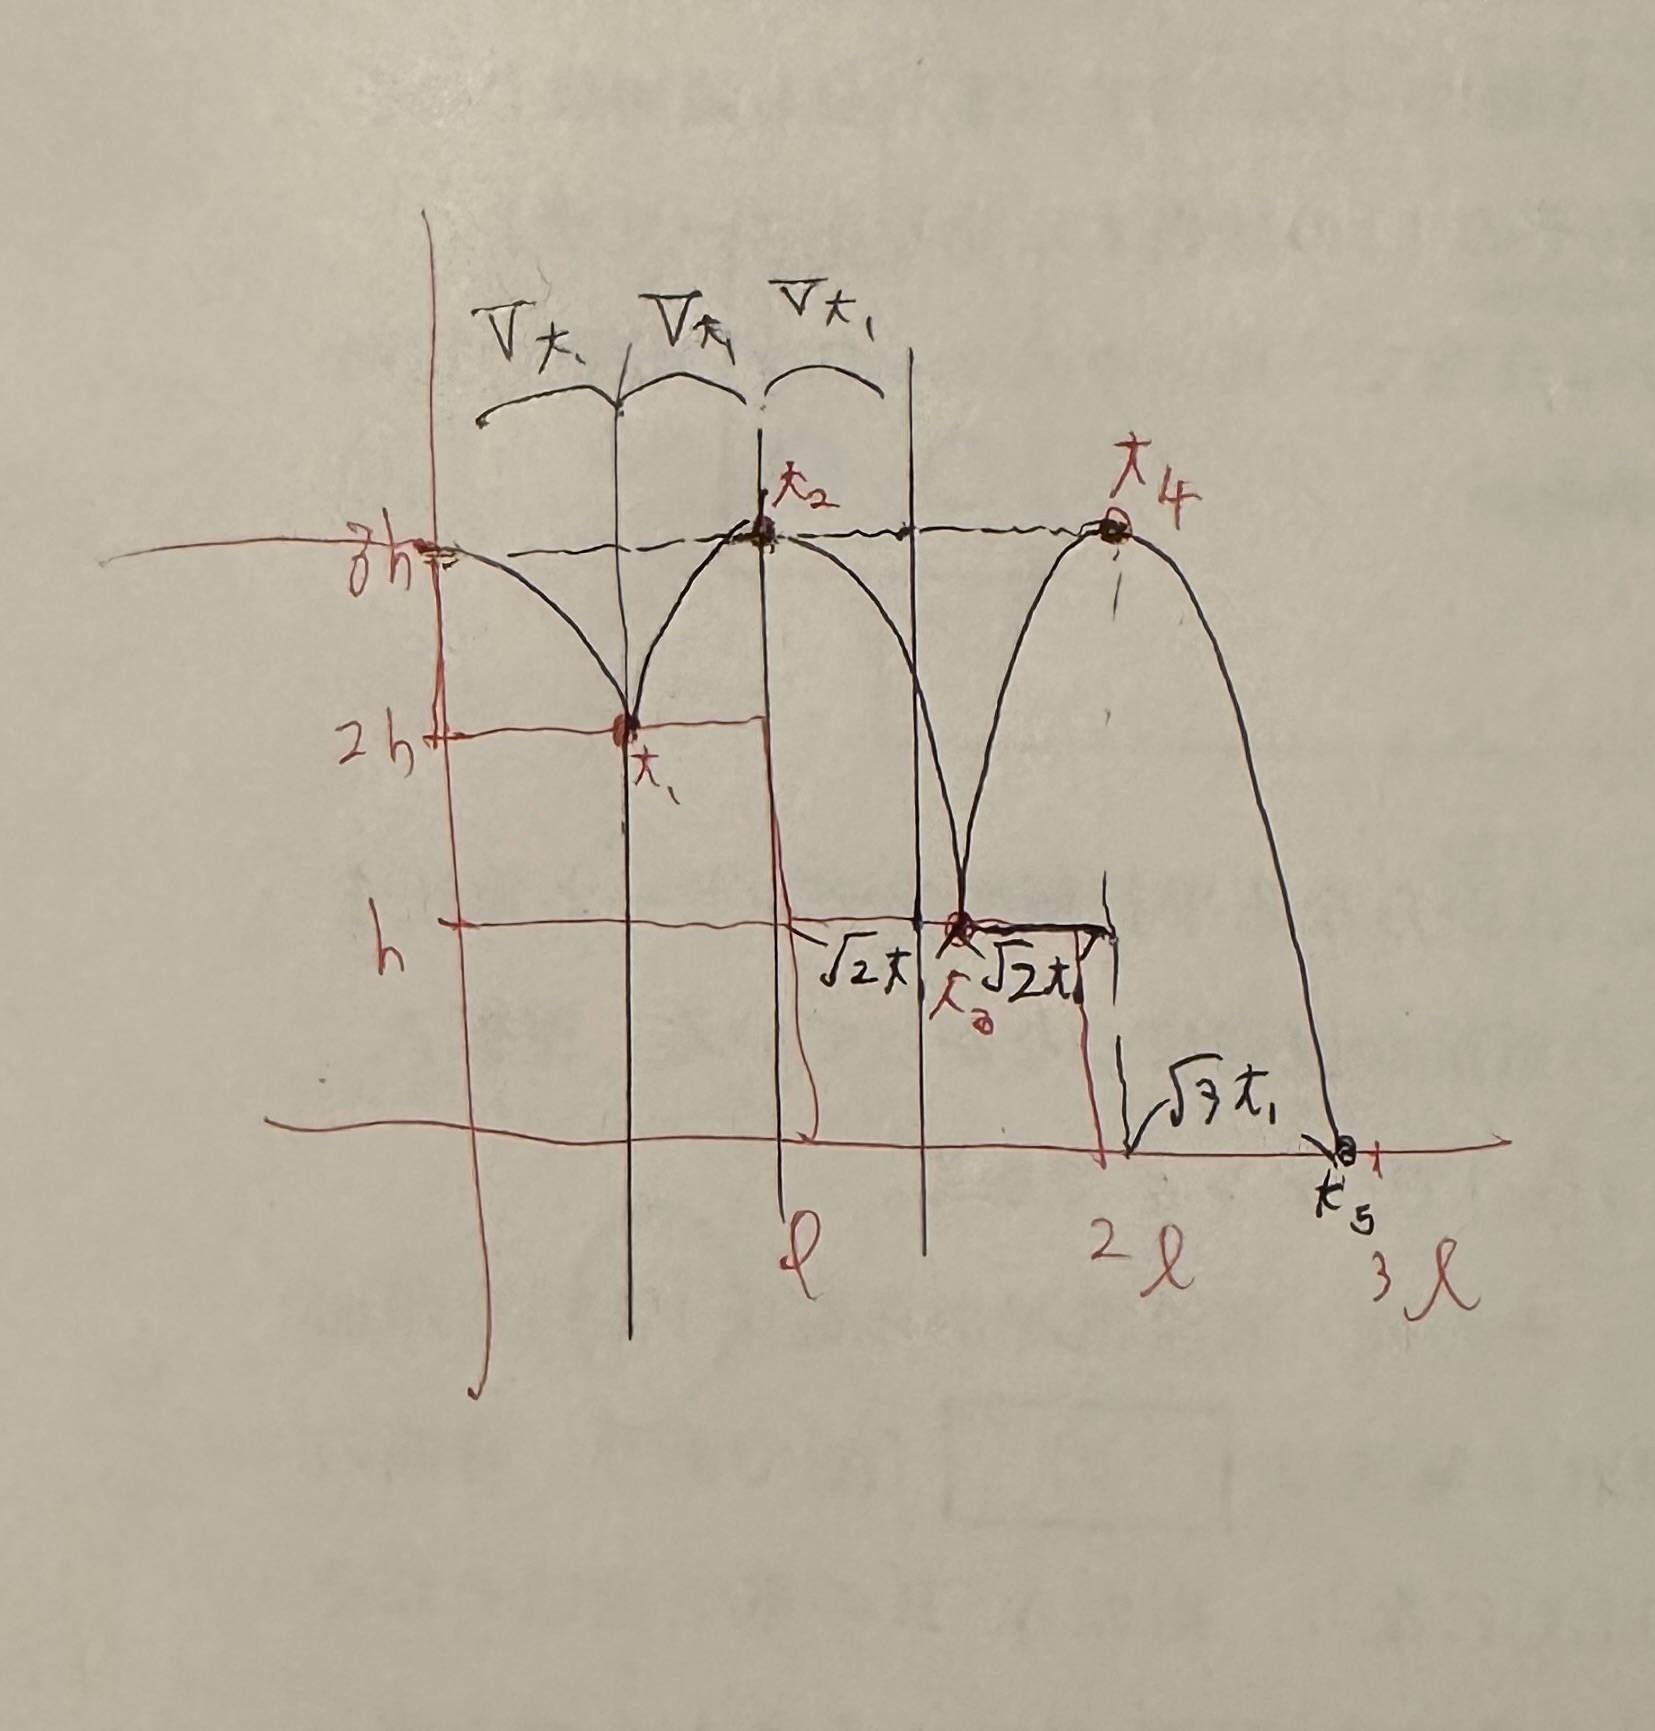 Vt₁ Vt₁ Vt₁
t₂
t₄
3h
2h
t₁
h
√2t t₃ √2t₁
√3t₁
t₅
l 2l 3l